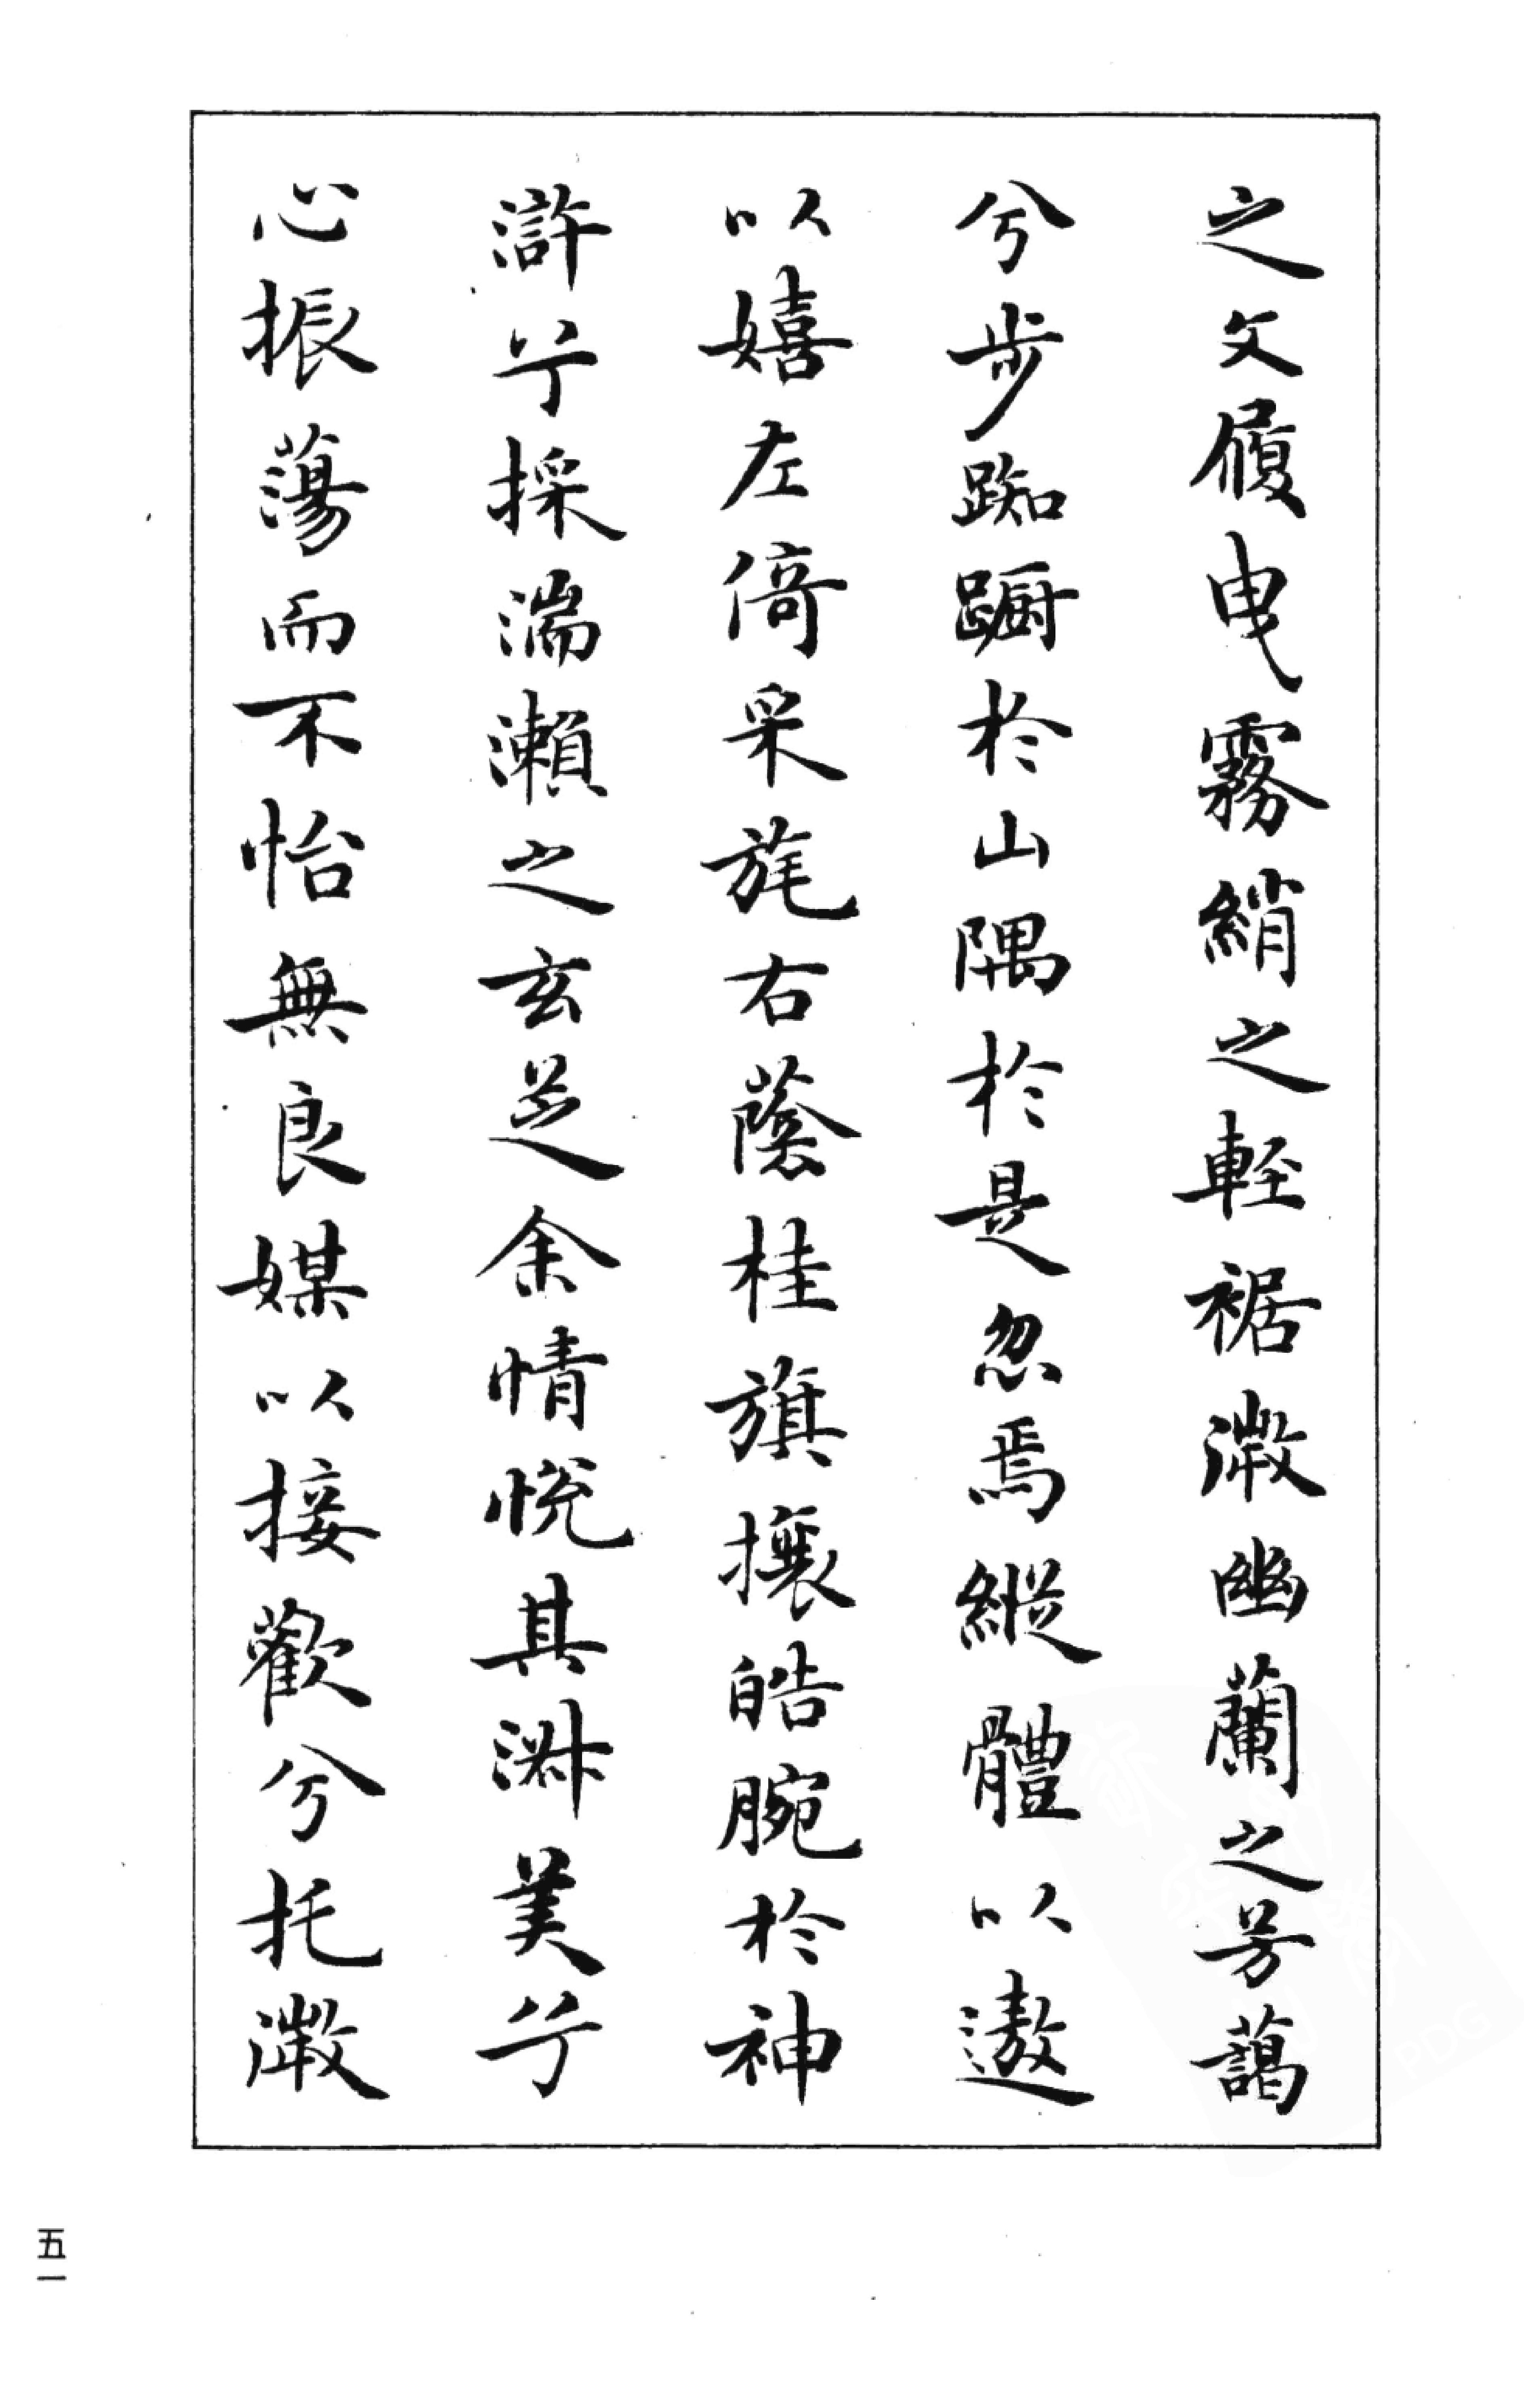 之文履曳霧綃之輕裾微幽蘭之芳藹
兮步踟蹰於山隅於是忽焉縱體以遨
以嬉左倚采旄右蔭桂旗攘皓腕於神
滸兮採湍瀨之玄芝余情悅其淑美兮
心振蕩而不怡無良媒以接歡兮托微
五一